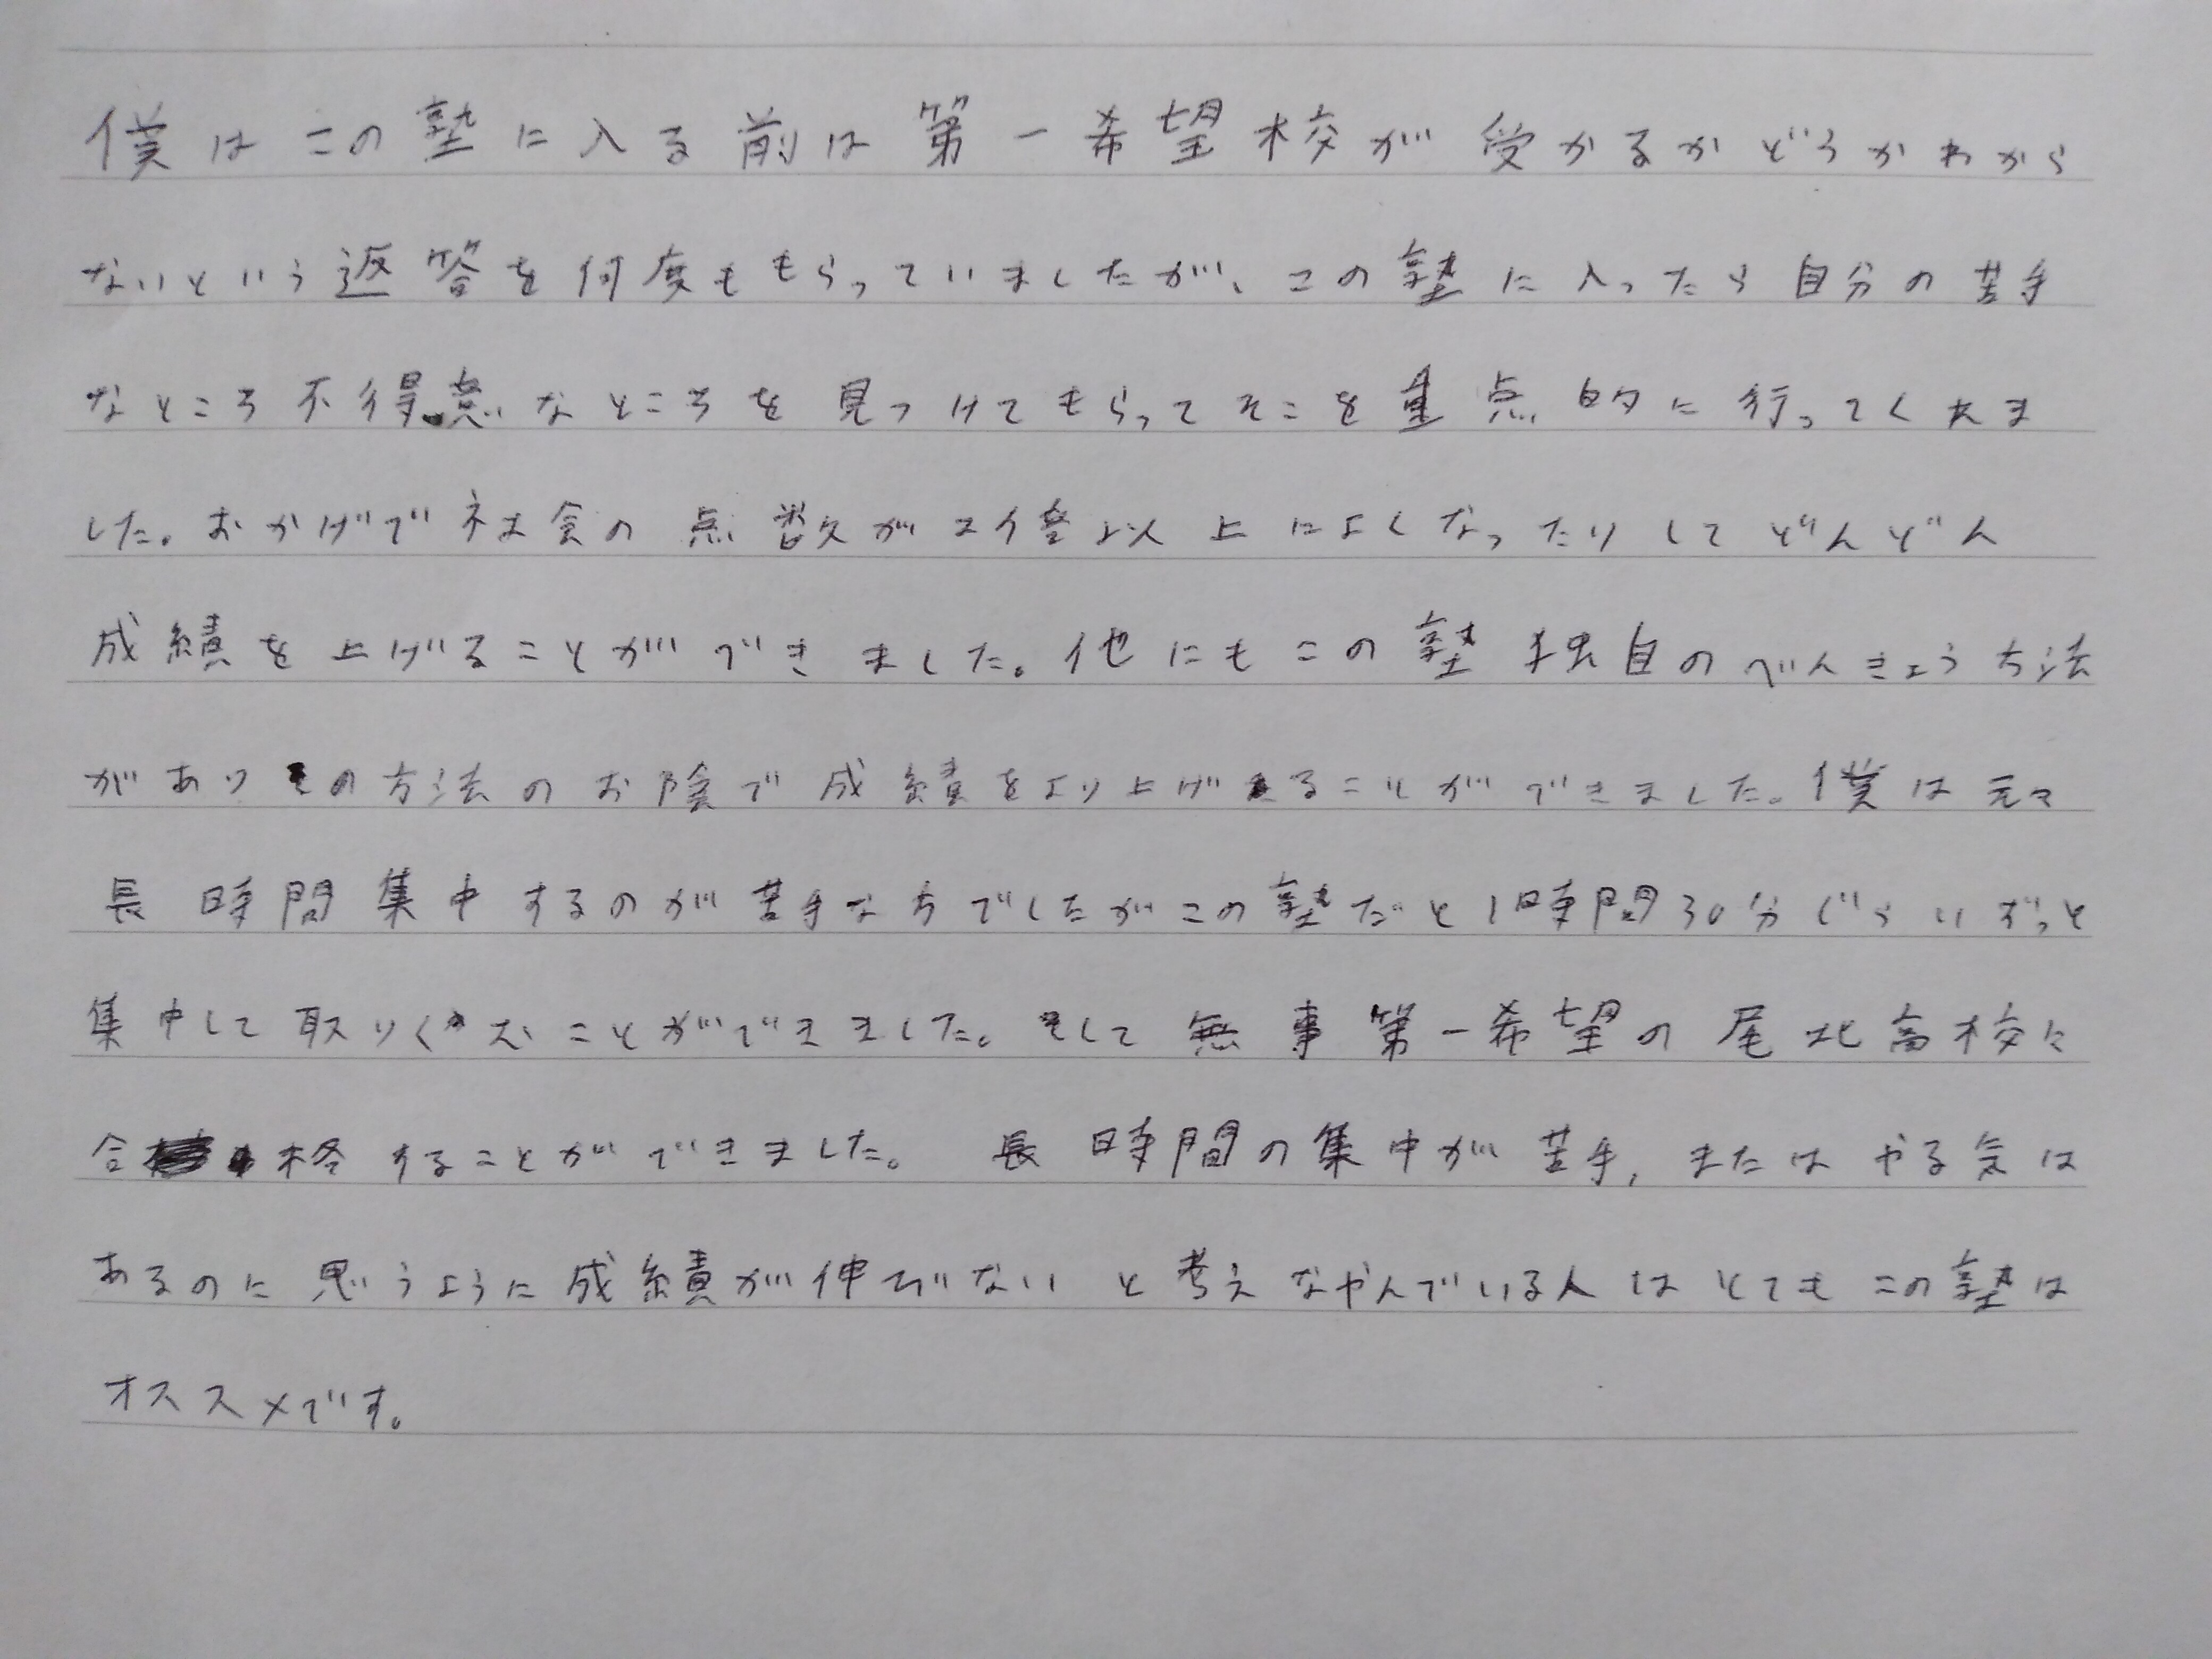 僕はこの塾に入る前は第一希望校が受かるかどうかわから
ないという返答を何度ももらっていましたが、この塾に入ったら自分の苦手
なところ不得意なところを見つけてもらってそこを重点的に行ってくれま
した。おかげで社会の点数が2倍以上によくなったりしてどんどん
成績を上げることができました。他にもこの塾独自のべんきょう方法
がありその方法のお陰で成績をより上げることができました。僕は元々
長時間集中するのが苦手な方でしたがこの塾だと1時間30分ぐらいずっと
集中して取りくむことができました。そして無事第一希望の尾北高校に
合格することができました。 長時間の集中が苦手,またはやる気は
あるのに思うように成績が伸びないと考えなやんでいる人はとてもこの塾は
オススメです。